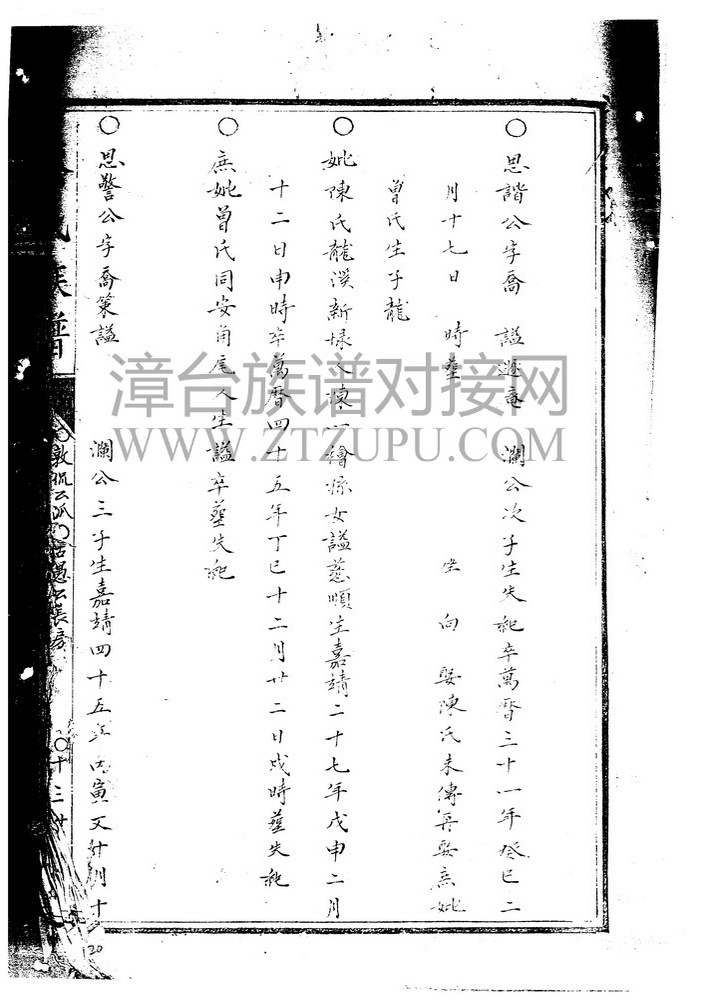 ○思諧公字喬 謚逊庵 瀾公次子生失紀卒萬曆三十一年癸巳二
月十七日 時塟 坐 向 娶陳氏未傳再娶庶妣
曾氏生子龍
○妣陳氏龍溪新垵人陳一檜孫女謚慈順生嘉靖二十七年戊申二月
十二日申時卒萬曆四十五年丁巳十二月廿二日戌時塟失紀
○庶妣曾氏同安角尾人生謚卒塟失紀
○思警公字喬策謚 瀾公三子生嘉靖四十五年丙寅又廿月十
氏族譜
敦侃公派
愚公長房
十三世
120
漳台族谱对接网
WWW.ZTZUPU.COM